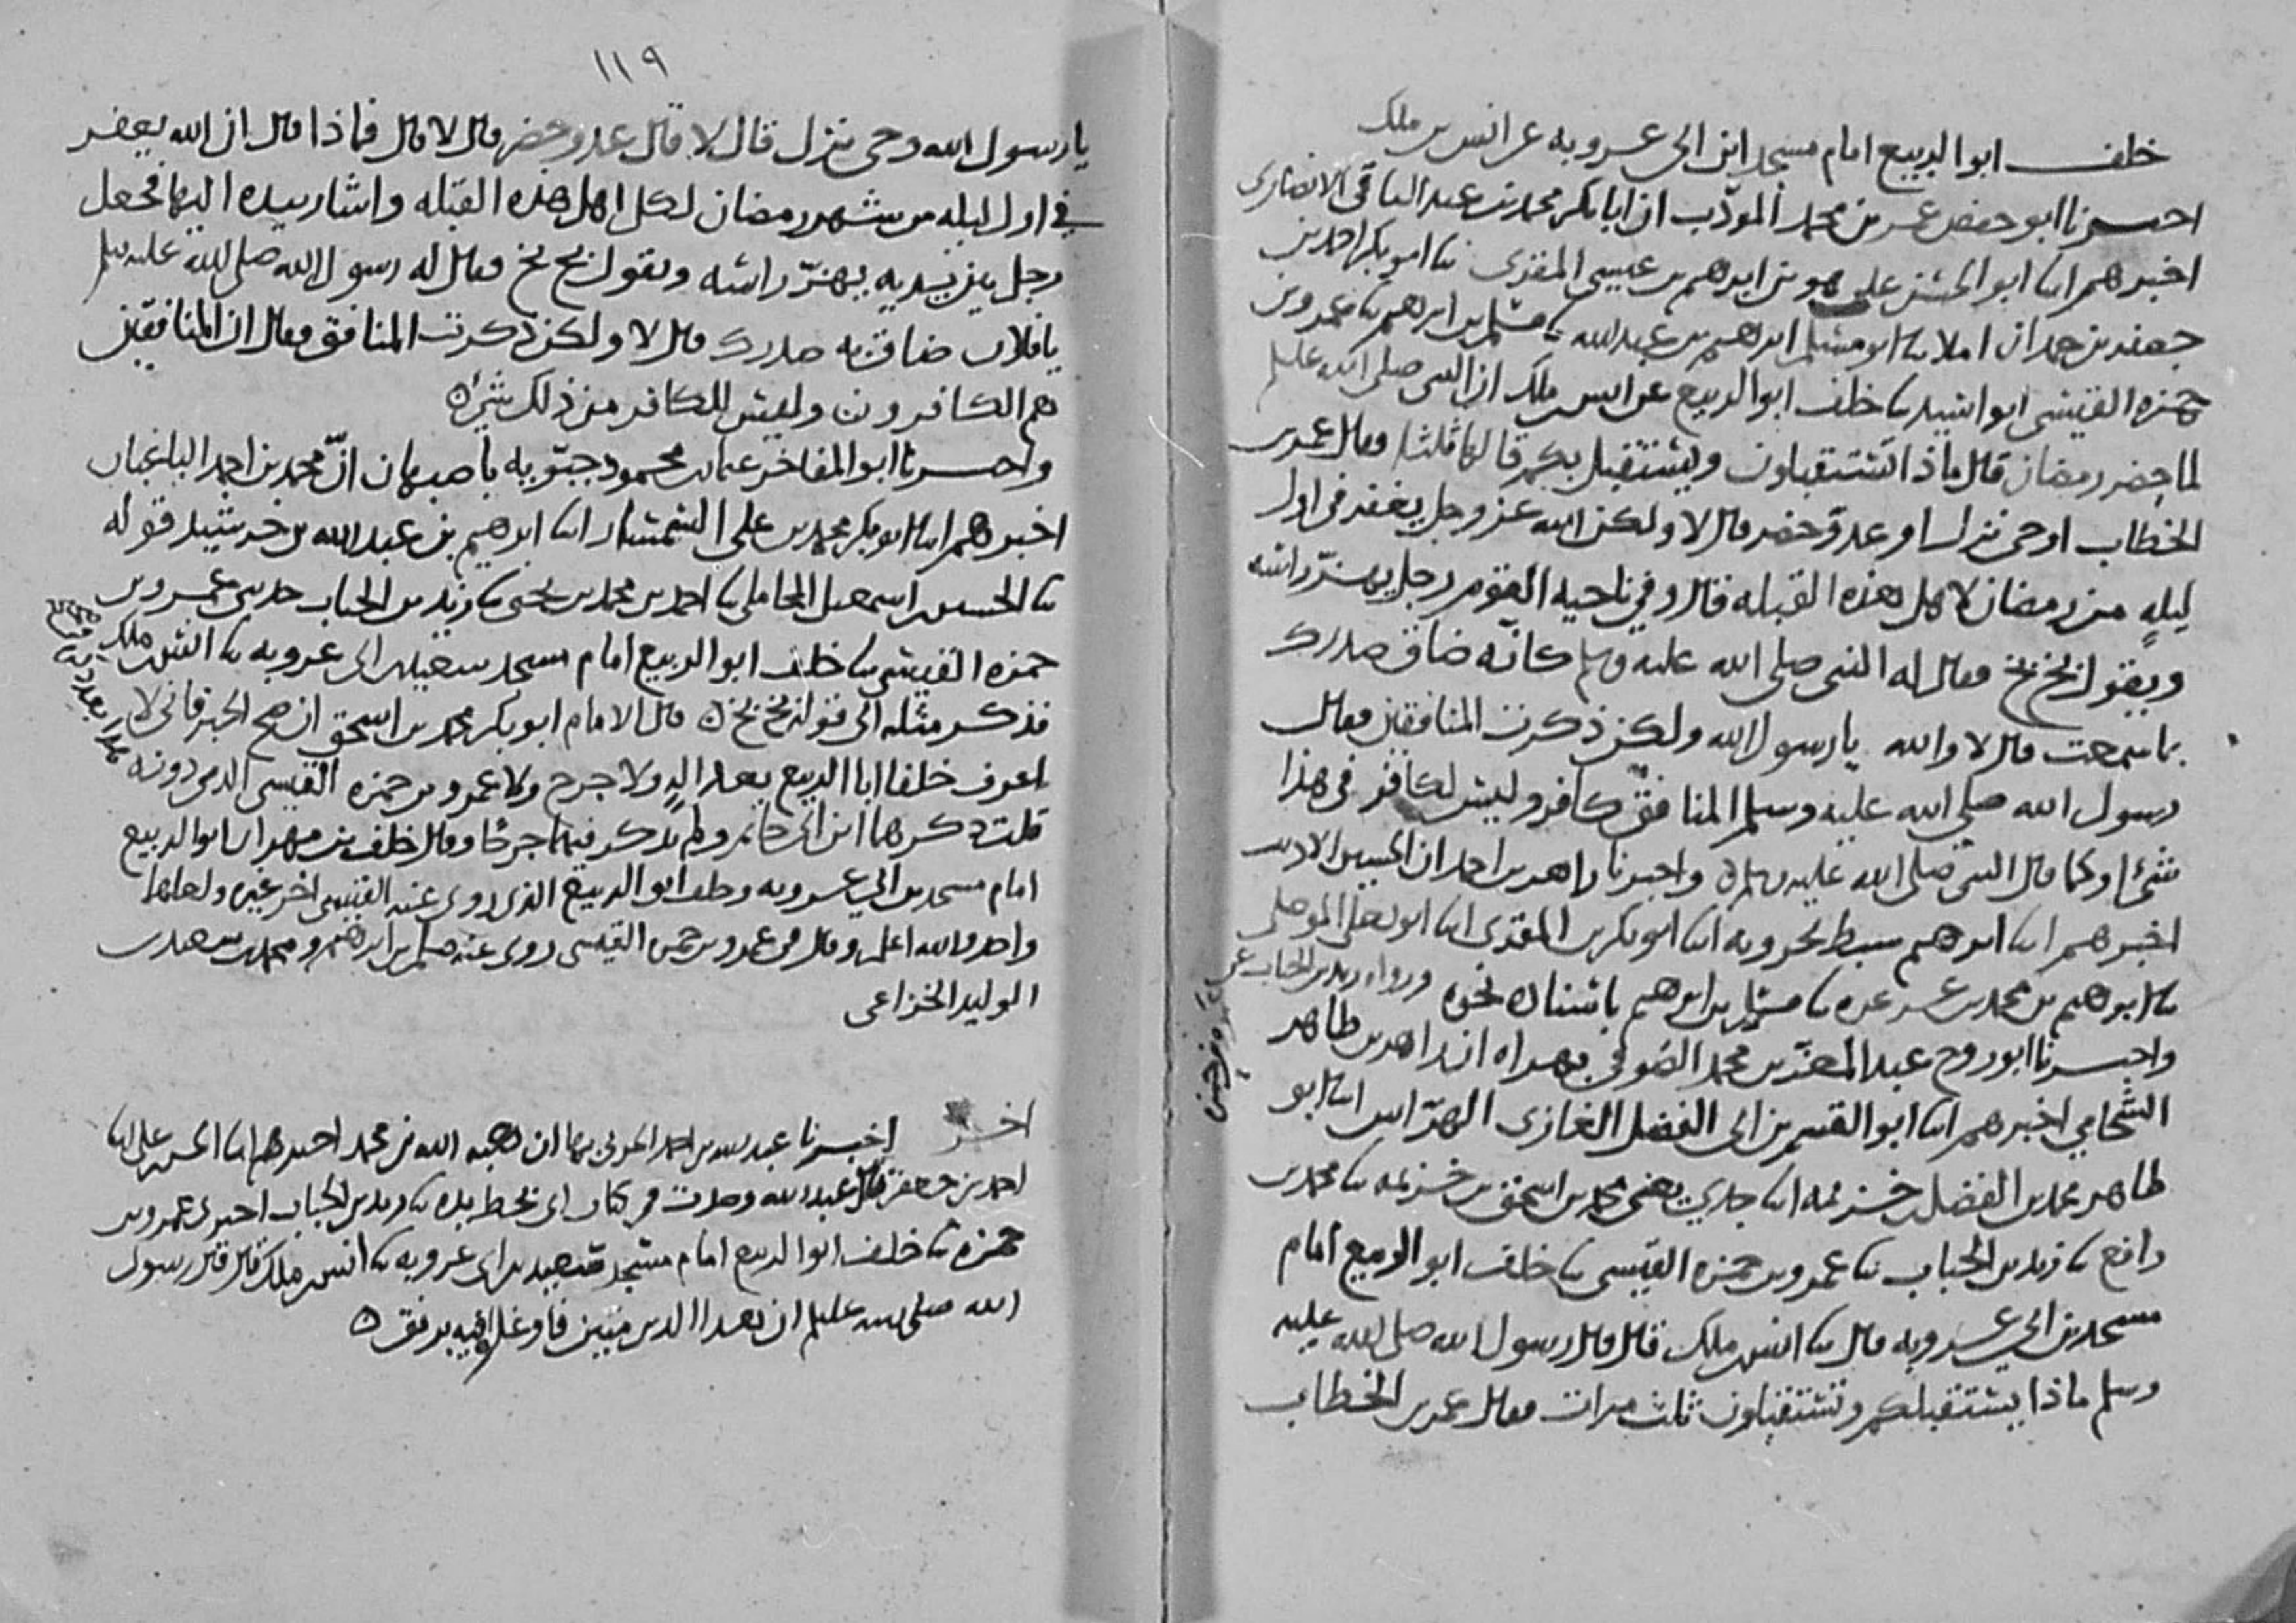 خلف ابو الربيع امام مسجد ابن ابى عروبه عن انس بن ملك
اخبرنا ابو حفص عمر بن محمد المودب ان ابا بكر محمد بن عبد الباقى الانصارى
اخبرهم انا ابو الحسن على هو بن ابرهيم بن عيسى المقرى نا ابو بكر احمد بن
جعفر بن حمدان املا نا ابو مسلم ابرهيم بن عبد الله نا مسلم بن ابرهيم نا عمرو بن
حمزه القيسى ابو اسيد نا خلف ابو الربيع عن انس بن ملك ان النبى صلى الله عليه وسلم
لما حضر رمضان قال ماذا تستقبلون ويستقبلكم قالها ثلثا فقال عمر بن
الخطاب اوحى نزل او عدو حضر قال لا ولكن الله عز وجل يغفر فى اول
ليله من رمضان لاهل هذه القبله قال وفى ناحيه القوم رجل يهز راسه
ويقول بخ بخ فقال له النبى صلى الله عليه وسلم كانه ضاق صدرك
بما سمعت قال لا والله يا رسول الله ولكن ذكرت المنافقين فقال
رسول الله صلى الله عليه وسلم المنافق كافر وليس لكافر فى هذا
شئ او كما قال النبى صلى الله عليه وسلم ه واخبرنا زاهر بن احمد ان الحسين الاديب
اخبرهم انا ابرهيم سبط بحرويه انا ابو بكر بن المقرى انا ابو يعلى الموصلى
نا ابرهيم بن محمد بن عرعره نا مسلم بن ابرهيم باسناده نحوه ورواه زيد بن الحباب عن
عمرو بن حمزه
واخبرنا ابو روح عبد المعز بن محمد الصوفى بهراه ان زاهر بن طاهر
الشحامى اخبرهم انا ابو القسم بن ابى الفضل الغازى الهراس انا ابو
طاهر محمد بن الفضل بن خزيمه انا جدى يعنى محمد بن اسحق بن خزيمه نا محمد بن
رافع نا زيد بن الحباب نا عمرو بن حمزه القيسى نا خلف ابو الربيع امام
مسجد بن ابى عروبه قال نا انس بن ملك قال قال رسول الله صلى الله عليه
وسلم ماذا يستقبلكم وتستقبلون ثلث مرات فقال عمر بن الخطاب
١١٩
يا رسول الله وحى نزل قال لا قال عدو حضر قال لا قال فماذا قال ان الله يغفر
فى اول ليله من شهر رمضان لكل اهل هذه القبله واشار بيده اليها فجعل
رجل بين يديه يهز راسه ويقول بخ بخ فقال له رسول الله صلى الله عليه وسلم
يا فلان ضاق به صدرك قال لا ولكن ذكرت المنافق فقال ان المنافقين
هم الكافرون وليس للكافر من ذلك شئ ه
واخبرنا ابو المفاخر محمود جبويه باصبهان ان محمد بن احمد الباغبان
اخبرهم انا ابو بكر محمد بن على السمسار انا ابرهيم بن عبد الله بن خرشيد قوله
نا الحسين بن اسمعيل المحاملى نا احمد بن محمد بن يحيى نا زيد بن الحباب حدثنى عمرو بن
حمزه القيسى نا خلف ابو الربيع امام مسجد سعيد بن ابى عروبه نا انس بن ملك
فذكر مثله الى قوله بخ بخ ه قال الامام ابو بكر محمد بن اسحق ان صح الخبر فانى لا
اعرف خلفا ابا الربيع بعداله ولا جرح ولا عمرو بن حمزه القيسى الذى دونه
قلت ذكرهما ابن ابى حاتم ولم يذكر فيهما جرحا وقال خلف بن مهران ابو الربيع
امام مسجد بن ابى عروبه وخلف ابو الربيع الذى روى عنه القيسى اخر غيره ولعلهما
واحد والله اعلم وقال فى عمرو بن حمزه القيسى روى عنه مسلم بن ابرهيم ومحمد بن سعد بن
الوليد الخزاعى
اخر اخبرنا عبد الله بن احمد الحربى بها ان هبه الله بن محمد اخبرهم انا الحسن بن على انا
احمد بن جعفر قال عبد الله وجدت فى كتاب ابى بخط يده نا زيد بن الحباب اخبرنى عمرو بن
حمزه نا خلف ابو الربيع امام مسجد سعيد بن ابى عروبه نا انس بن ملك قال قال رسول
الله صلى الله عليه وسلم ان هذا الدين متين فاوغلوا فيه برفق ه